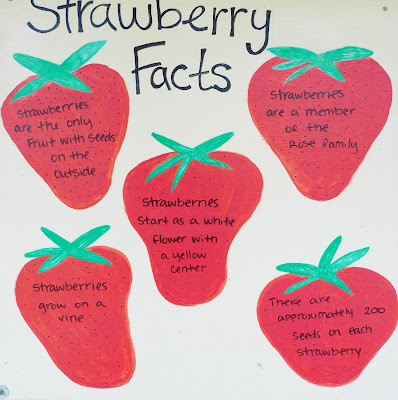 Strawberry
Facts
Strawberries
are the only
Fruit with seeds
on the
outside
Strawberries
are a member
of the
Rose family
Strawberries
Start as a white
flower with
a yellow
center
Strawberries
grow on a
vine
There are
approximately 200
seeds on each
strawberry